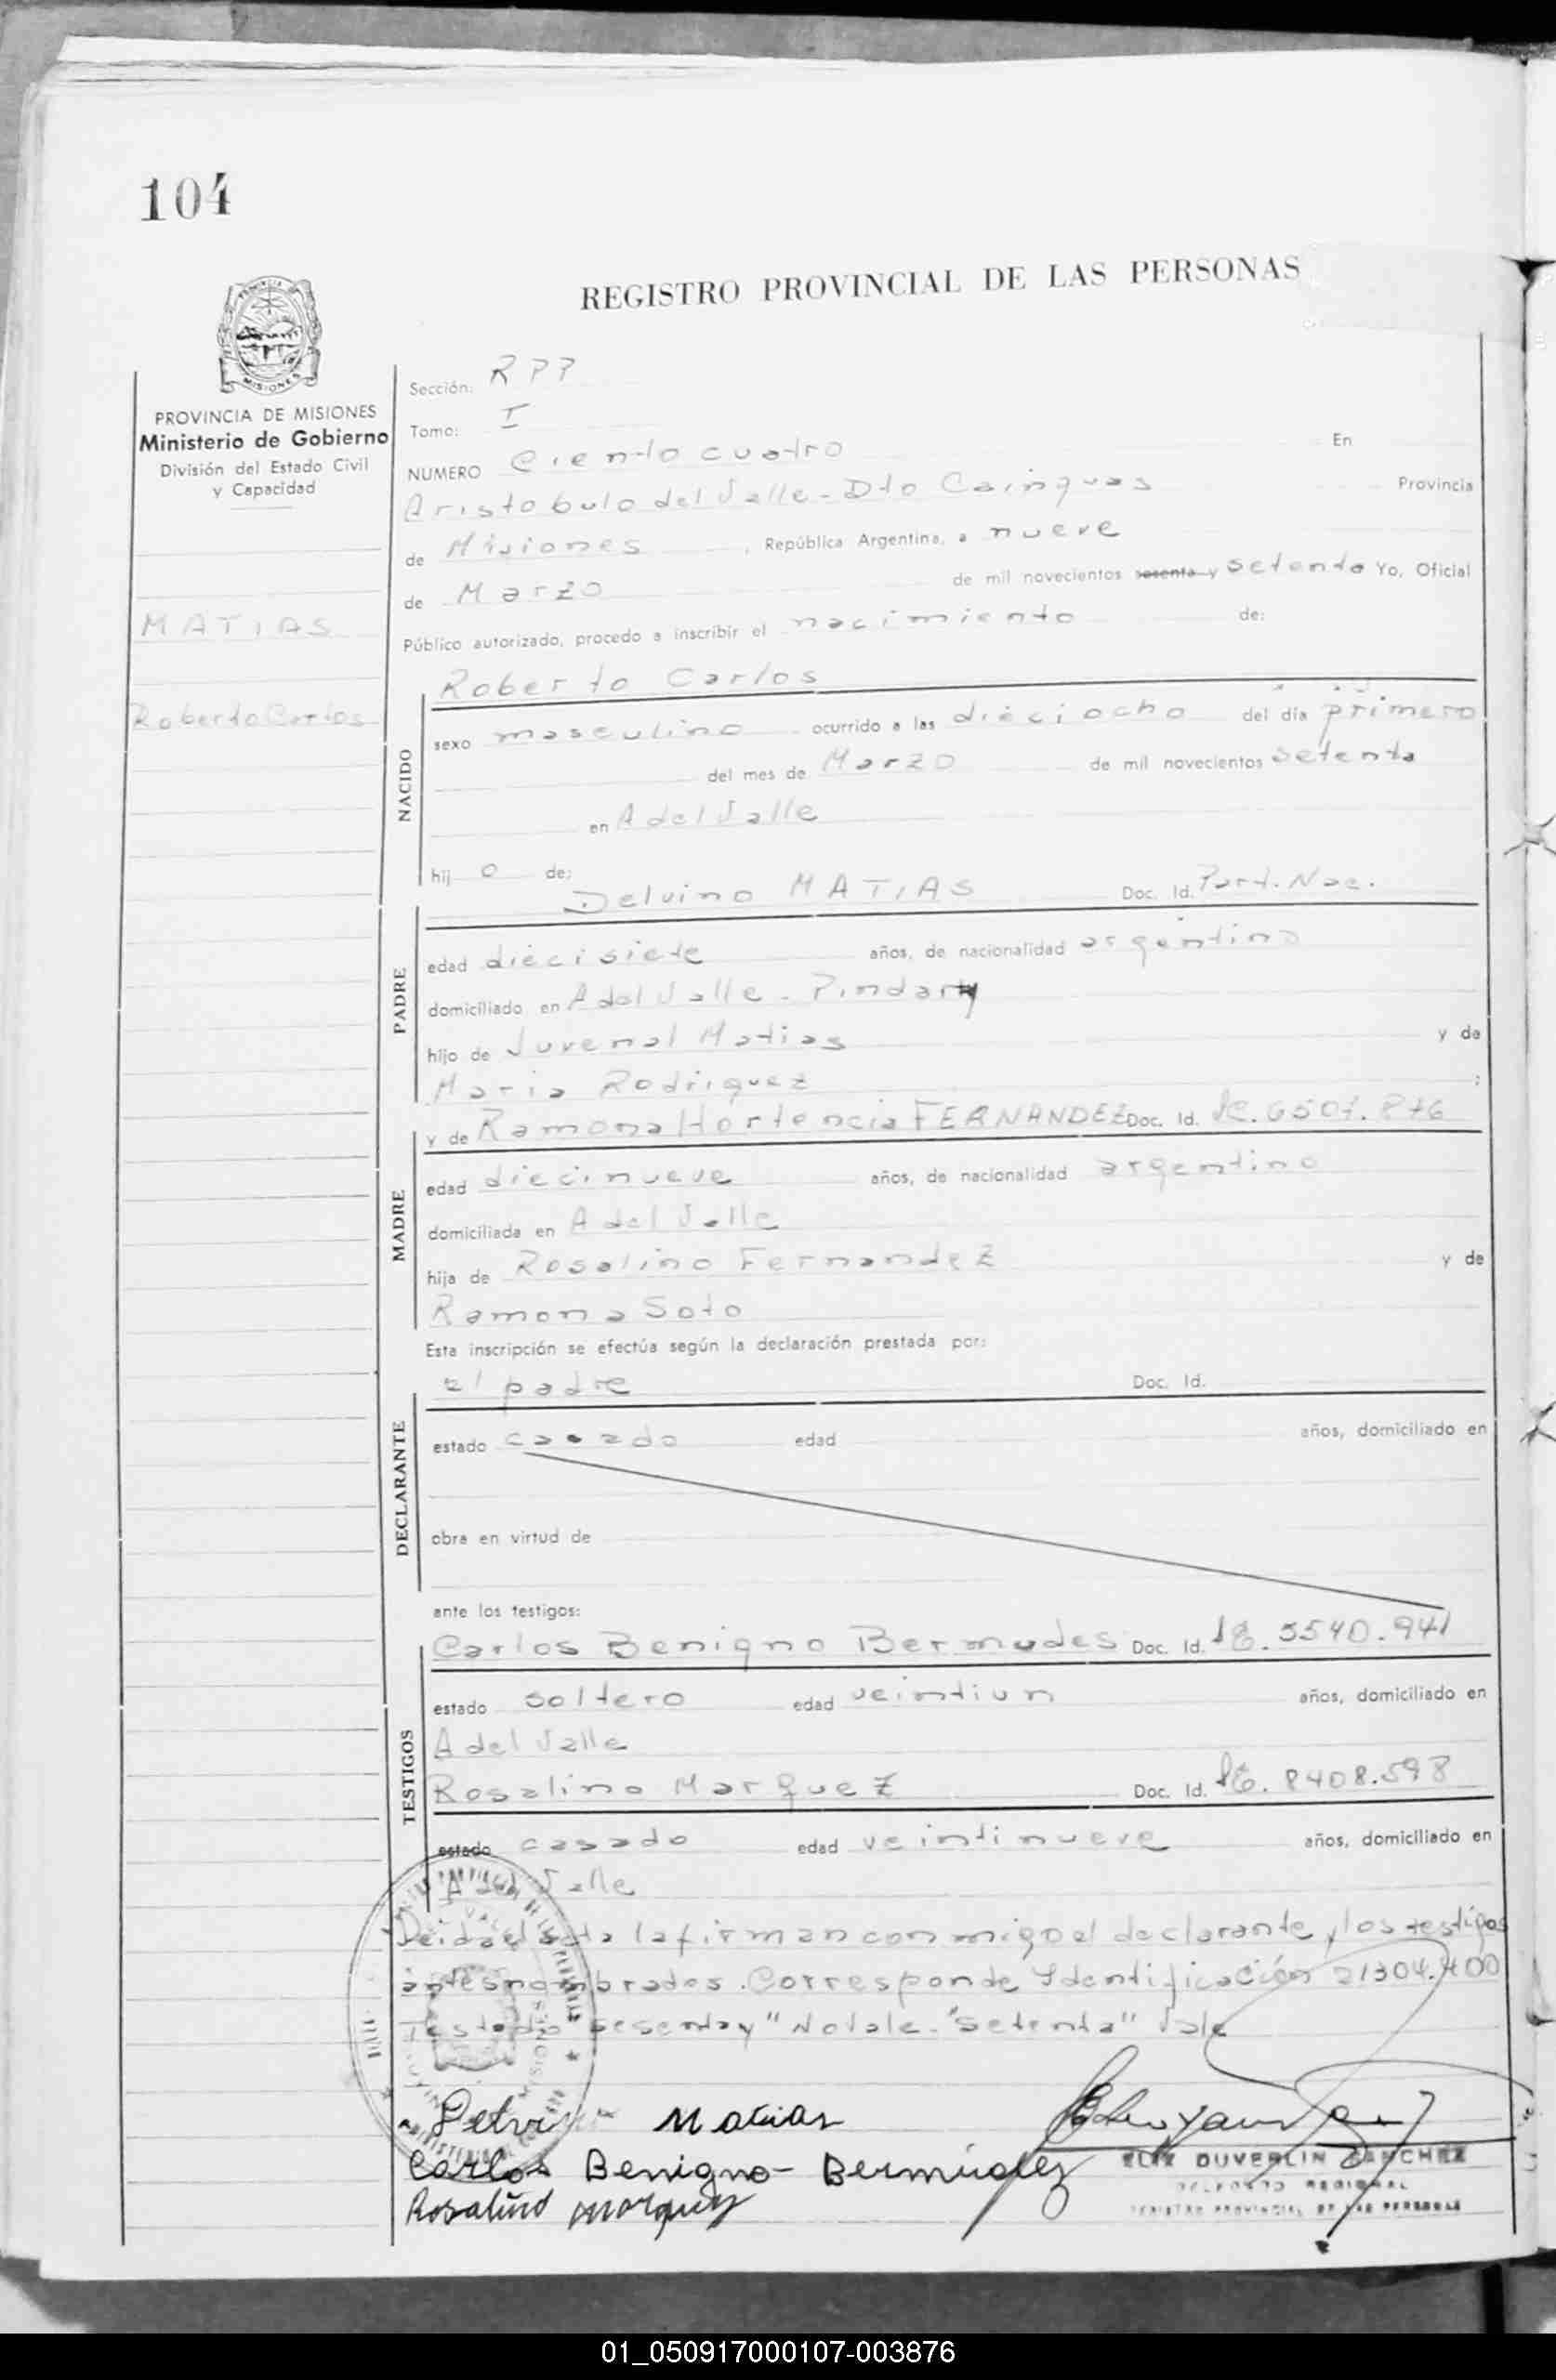 104
REGISTRO PROVINCIAL DE LAS PERSONAS
PROVINCIA DE MISIONES
Ministerio de Gobierno
División del Estado Civil
y Capacidad
MATIAS
Roberto Carlos
Sección: RPP
Tomo: I
NUMERO Ciento cuatro En
Aristobulo del Valle - Dto Cainguas Provincia
de Misiones, República Argentina, a nueve
de Marzo de mil novecientos sesenta y setenta Yo, Oficial
Público autorizado, procedo a inscribir el nacimiento de:
Roberto Carlos
NACIDO
sexo masculino ocurrido a las dieciocho del día primero
del mes de Marzo de mil novecientos setenta
en A del Valle
hij o de:
Delvino MATIAS Doc. Id. Part. Nac.
PADRE
edad diecisiete años, de nacionalidad argentino
domiciliado en A del Valle - Pindaty
hijo de Juvenal Matias y de
Maria Rodriguez ;
y de Ramona Hortencia FERNANDEZ Doc. Id. LC. 6507.876
MADRE
edad diecinueve años, de nacionalidad argentino
domiciliada en A del Valle
hija de Rosalino Fernandez y de
Ramona Soto
Esta inscripción se efectúa según la declaración prestada por:
el padre Doc. Id.
DECLARANTE
estado casado edad años, domiciliado en
obra en virtud de
ante los testigos:
Carlos Benigno Bermudes Doc. Id. LE. 5540.941
TESTIGOS
estado soltero edad veintiun años, domiciliado en
A del Valle
Rosalino Marquez Doc. Id. LE. 8408.598
estado casado edad veintinueve años, domiciliado en
A del Valle
Leida el acta la firman conmigo el declarante y los testigos
antes nombrados. Corresponde Identificación 21304.400
Testado "sesenta y" No vale - "setenta" Vale
Delvino Matias
Carlos Benigno Bermúdez
Rosalino Marquez
ELIX DUVERLIN SANCHEZ
DELEGADO REGIONAL
REGISTRO PROVINCIAL DE LAS PERSONAS
MISIONES
01_050917000107-003876